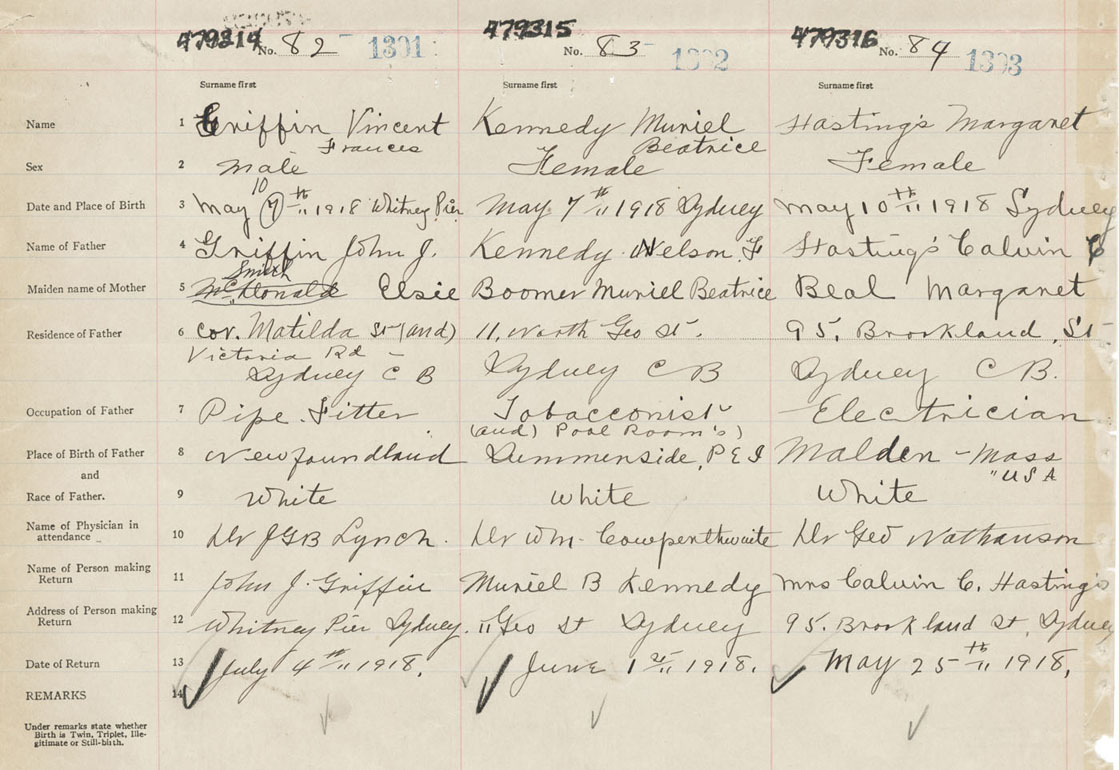 479314 No. 82 1301 479315 No. 83 1302 479316 No. 84 1303
Surname first Surname first Surname first
Name 1 Griffin Vincent Kennedy Muriel Hasting's Margaret
Frances Beatrice
Sex 2 Male Female Female
10
Date and Place of Birth 3 May 7th " 1918 Whitney Pier May 7th " 1918 Sydney May 10th " 1918 Sydney
Name of Father 4 Griffin John J. Kennedy Nelson F Hasting's Calvin C
Smith
Maiden name of Mother 5 McDonald Elsie Boomer Muriel Beatrice Beal Margaret
Residence of Father 6 cor. Matilda St (and) 11, North Geo St. 95, Brookland, St
Victoria Rd –
Sydney C B Sydney C B Sydney C B.
Occupation of Father 7 Pipe Fitter Tobacconist Electrician
(and) Pool Room's)
Place of Birth of Father 8 Newfoundland Summerside, P E I Malden – Mass
and "USA
Race of Father. 9 White White White
Name of Physician in
attendance 10 Dr JGB Lynch. Dr Wm. Cowperthwaite Dr Geo Nathanson
Name of Person making
Return 11 John J. Griffin Muriel B Kennedy Mrs Calvin C. Hasting's
Address of Person making
Return 12 Whitney Pier Sydney. 11 Geo St Sydney 95. Brookland St, Sydney
Date of Return 13 July 4th " 1918. June 1st " 1918. May 25th " 1918.
REMARKS 14
Under remarks state whether
Birth is Twin, Triplet, Ille-
gitimate or Still-birth.